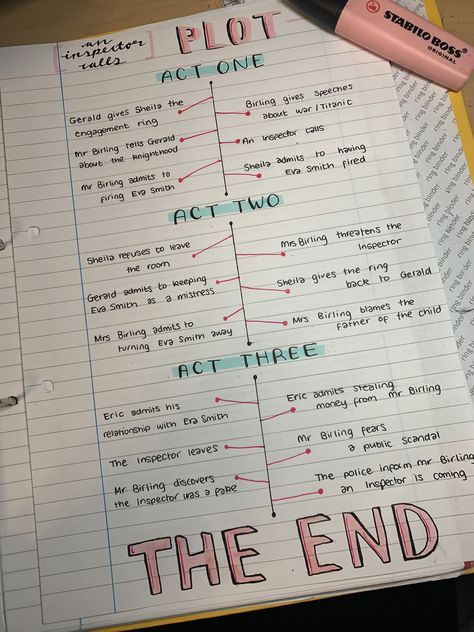 an
inspector
calls
PLOT
STABILO BOSS
ORIGINAL
ACT ONE
Gerald gives Sheila the
engagement ring
Birling gives speeches
about war/Titanic
Mr Birling tells Gerald
about the knighthood
An Inspector calls
Mr Birling admits to
firing Eva Smith
Sheila admits to having
Eva Smith fired
ACT TWO
Sheila refuses to leave
the room
Ms Birling threatens the
Inspector
Gerald admits to keeping
Eva Smith as a mistress
Sheila gives the ring
back to Gerald
Mrs Birling admits to
turning Eva Smith away
Mrs Birling blames the
father of the child
ACT THREE
Eric admits his
relationship with Eva Smith
Eric admits stealing
money from Mr Birling
The Inspector leaves
Mr Birling fears
a public scandal
Mr Birling discovers
the Inspector was a fake
The police inform Mr Birling
an Inspector is coming
THE END
ring binder